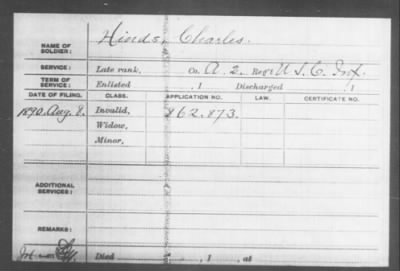 NAME OF SOLDIER: Hinds, Charles.
SERVICE: Late rank, Co. A. 2. Reg't U. S. C. Inf.
TERM OF SERVICE: Enlisted , 1 Discharged , 1
DATE OF FILING. CLASS. APPLICATION NO. LAW. CERTIFICATE NO.
1890. Aug. 8. Invalid, 862.873.
Widow,
Minor,
ADDITIONAL SERVICES:
REMARKS:
Died , 1 , at